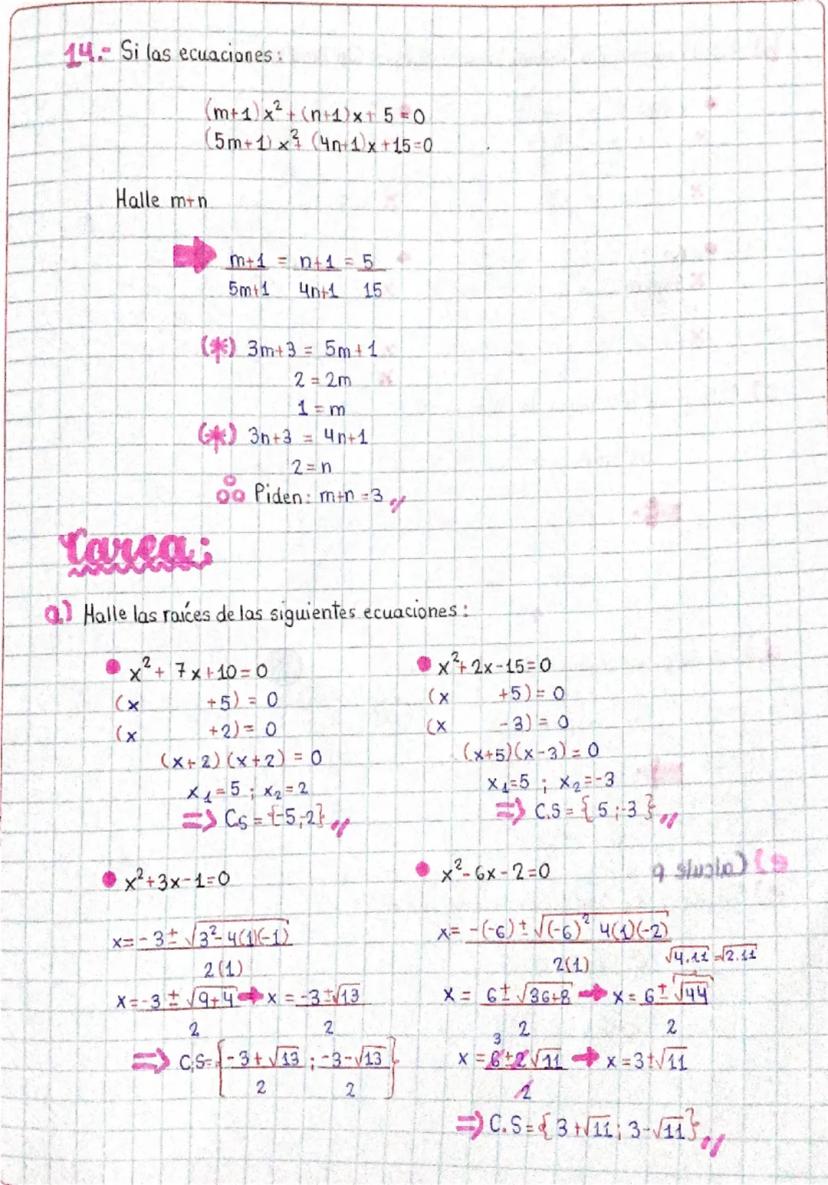 14.- Si las ecuaciones:
(m+1)x²+(n+1)x+5=0
(5m+1)x²+(4n+1)x+15=0
Halle m+n
m+1 = n+1 = 5
5m+1 4n+1 15
(*) 3m+3 = 5m+1
2=2m
1=m
(*) 3n+3 = 4n+1
2=n
Piden: m+n=3
Tarea:
a) Halle las raíces de las siguientes ecuaciones:
x²+7x+10=0
(x +5)=0
(x +2)=0
(x+2)(x+2)=0
x₁=5 ; x₂=2
⇒ Cs={-5;-2}
x²+2x-15=0
(x +5)=0
(x -3)=0
(x+5)(x-3)=0
x₁=5 ; x₂=-3
⇒ C.S={5;-3}
x²+3x-1=0
x=-3±√3²-4(1)(-1)
2(1)
x=-3±√9+4 → x=-3±√13
2 2
⇒ C.S={-3+√13 ; -3-√13}
2 2
x²-6x-2=0
x=-(-6)±√(-6)² 4(1)(-2)
2(1) √4.11=√2.11
x=6±√36+8 → x=6±√44
2 2
3
x=6±2√11 → x=3±√11
2
⇒ C.S={3+√11; 3-√11}
e) Calcule p